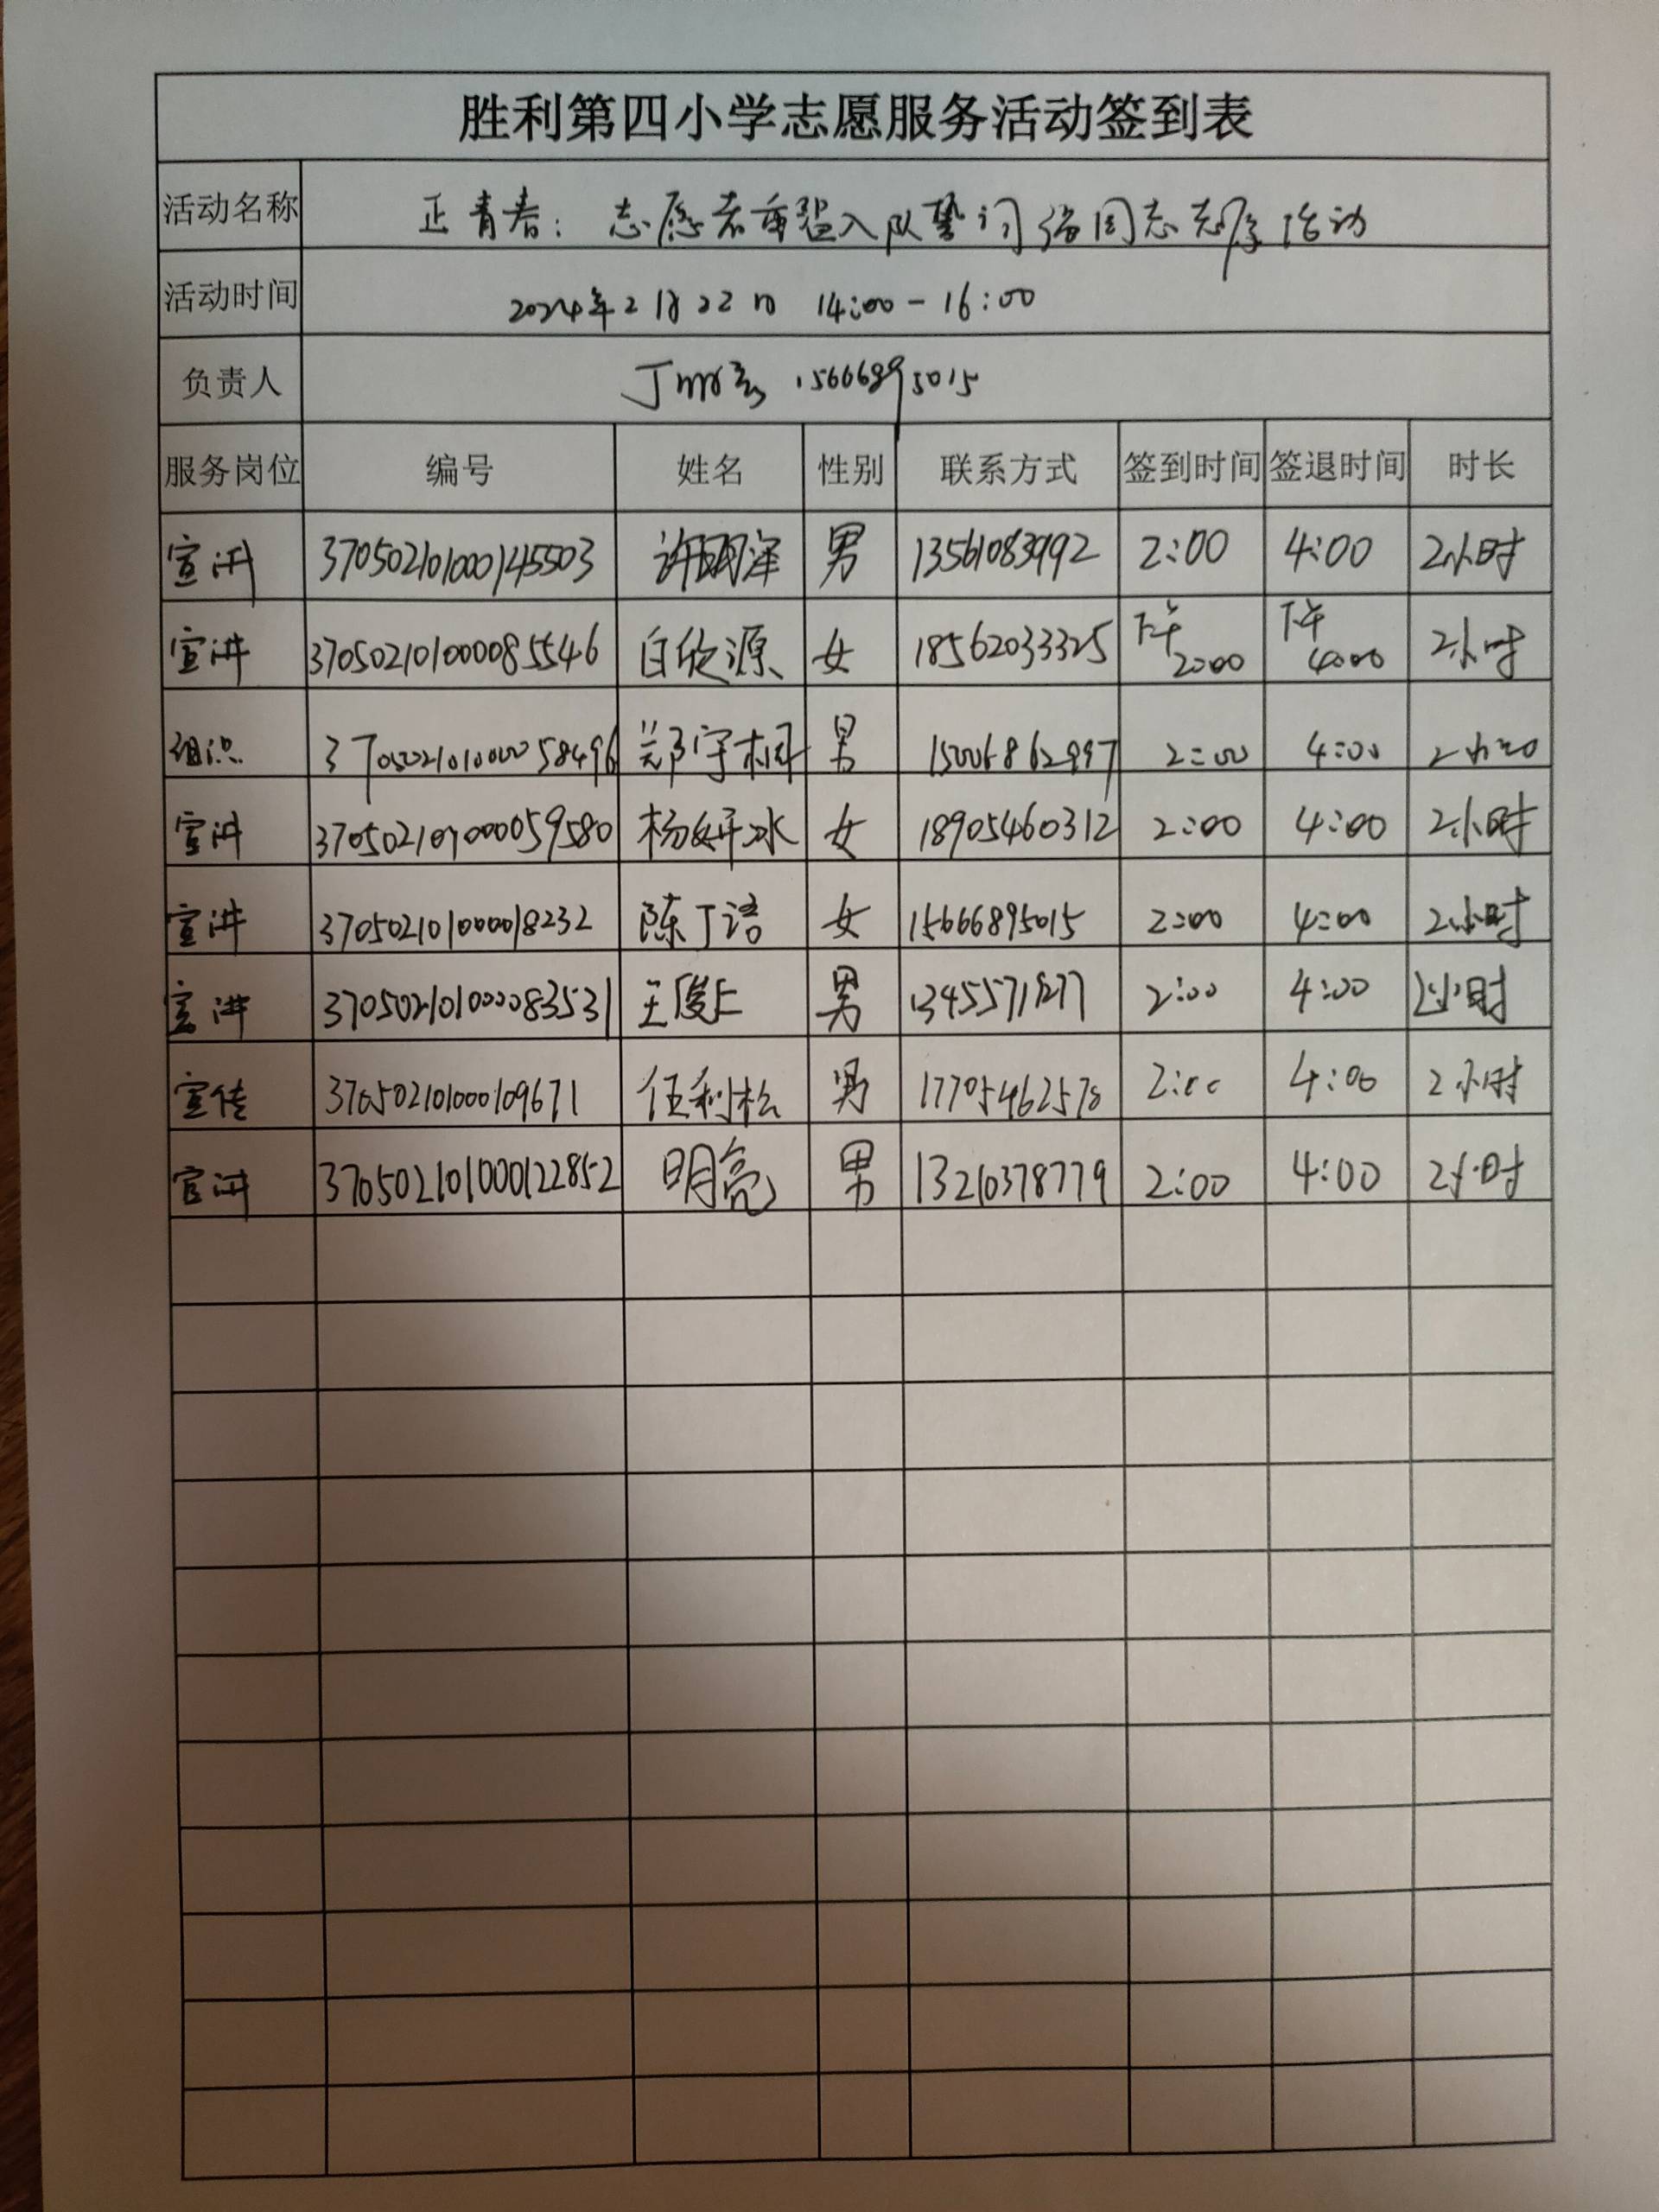 胜利第四小学志愿服务活动签到表
活动名称 正青春：志愿者重温入队誓词 活动
活动时间 2024年2月22日 14:00-16:00
负责人 丁 15666895015
服务岗位 编号 姓名 性别 联系方式 签到时间 签退时间 时长
宣讲 370502101000145503 许明泽 男 13561083992 2:00 4:00 2小时
宣讲 370502101000085546 白欣源 女 18562033325 下午2:00 下午4:00 2小时
组织 370502101000058496 郑宇桐 男 15006862997 2:00 4:00 2小时
宣讲 370502101000059580 杨妍冰 女 18905460312 2:00 4:00 2小时
宣讲 370502101000018232 陈丁语 女 15666895015 2:00 4:00 2小时
宣讲 370502101000083531 王俊仁 男 2:00 4:00 2小时
宣传 370502101000109671 任利松 男 17705462578 2:00 4:00 2小时
宣讲 370502101000122852 明亮 男 13210378779 2:00 4:00 2小时